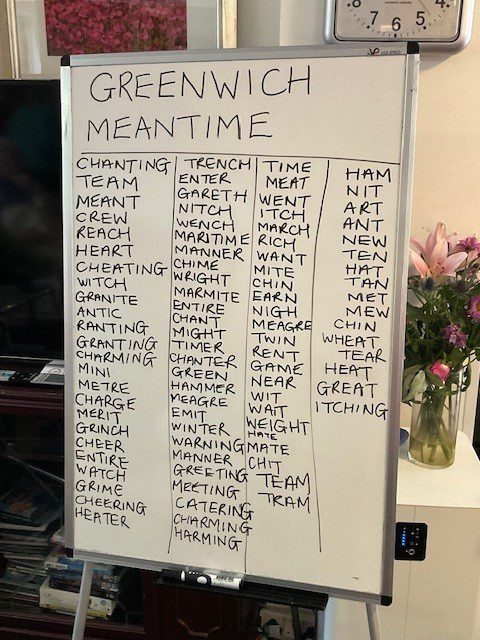 8 7 6 5 4
GREENWICH
MEANTIME
CHANTING
TEAM
MEANT
CREW
REACH
HEART
CHEATING
WITCH
GRANITE
ANTIC
RANTING
GRANTING
CHARMING
MINI
METRE
CHARGE
MERIT
GRINCH
CHEER
ENTIRE
WATCH
GRIME
CHEERING
HEATER
TRENCH
ENTER
GARETH
NITCH
WENCH
MARITIME
MANNER
CHIME
WRIGHT
MARMITE
ENTIRE
CHANT
MIGHT
TIMER
CHANTER
GREEN
HAMMER
MEAGRE
EMIT
WINTER
WARNING
MANNER
GREETING
MEETING
CATERING
CHARMING
HARMING
TIME
MEAT
WENT
ITCH
MARCH
RICH
WANT
MITE
CHIN
EARN
NIGH
MEAGRE
TWIN
RENT
GAME
NEAR
WIT
WAIT
WEIGHT
HATE
MATE
CHIT
TEAM
TRAM
HAM
NIT
ART
ANT
NEW
TEN
HAT
TAN
MET
MEW
CHIN
WHEAT
TEAR
HEAT
GREAT
ITCHING